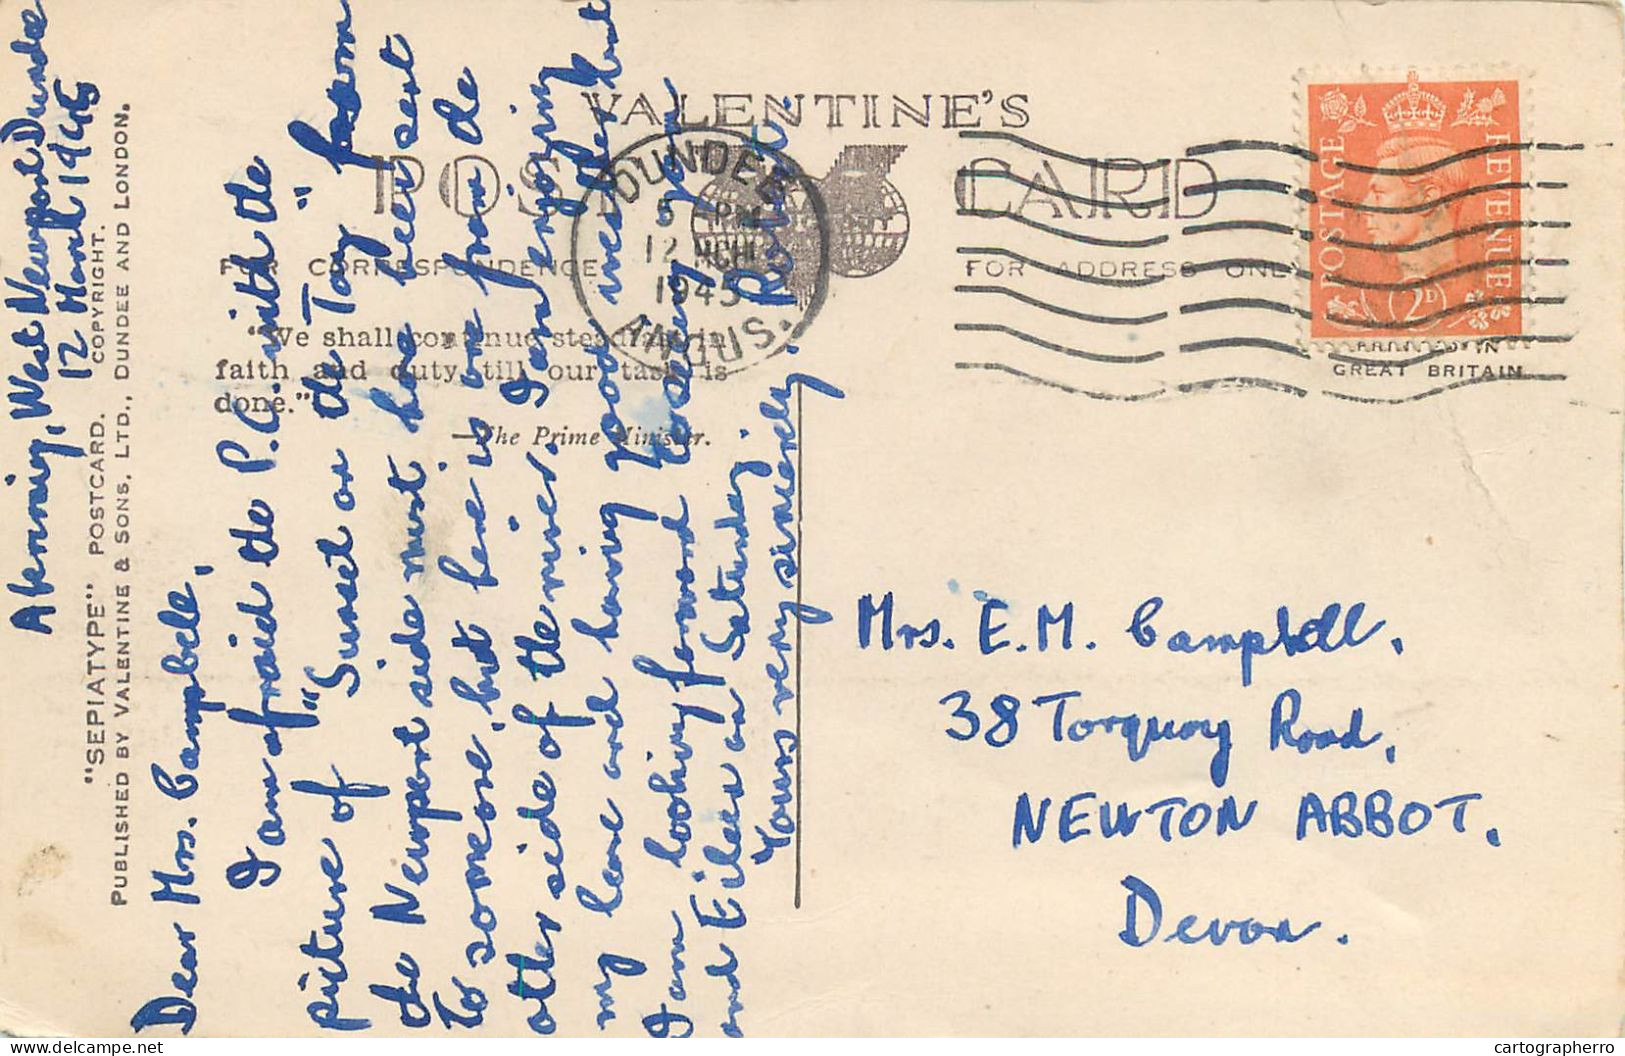 VALENTINE'S
POST CARD
FOR CORRESPONDENCE
FOR ADDRESS ONL
"We shall continue steadfast in
faith and duty till our task is
done."
—The Prime Minister.
"SEPIATYPE" POSTCARD. COPYRIGHT.
PUBLISHED BY VALENTINE & SONS, LTD., DUNDEE AND LONDON.
DUNDEE
5 PM
12 MCH
1945
ANGUS.
POSTAGE REVENUE
2D
PRINTED IN
GREAT BRITAIN
West Newport Dundee
12 March 1945
Dear Mrs. Campbell,
I am afraid the P.C. with the
picture of "Sunset on the Tay" from
the Newport side must have been sent
to someone, but here is one from the
other side of the river. I am enjoying
my leave and having good weather but
I am looking forward to seeing you
and Eileen on Saturday.
Yours very sincerely,
Robert.
Mrs. E.M. Campbell,
38 Torquay Road,
NEWTON ABBOT.
Devon.
cartographerro